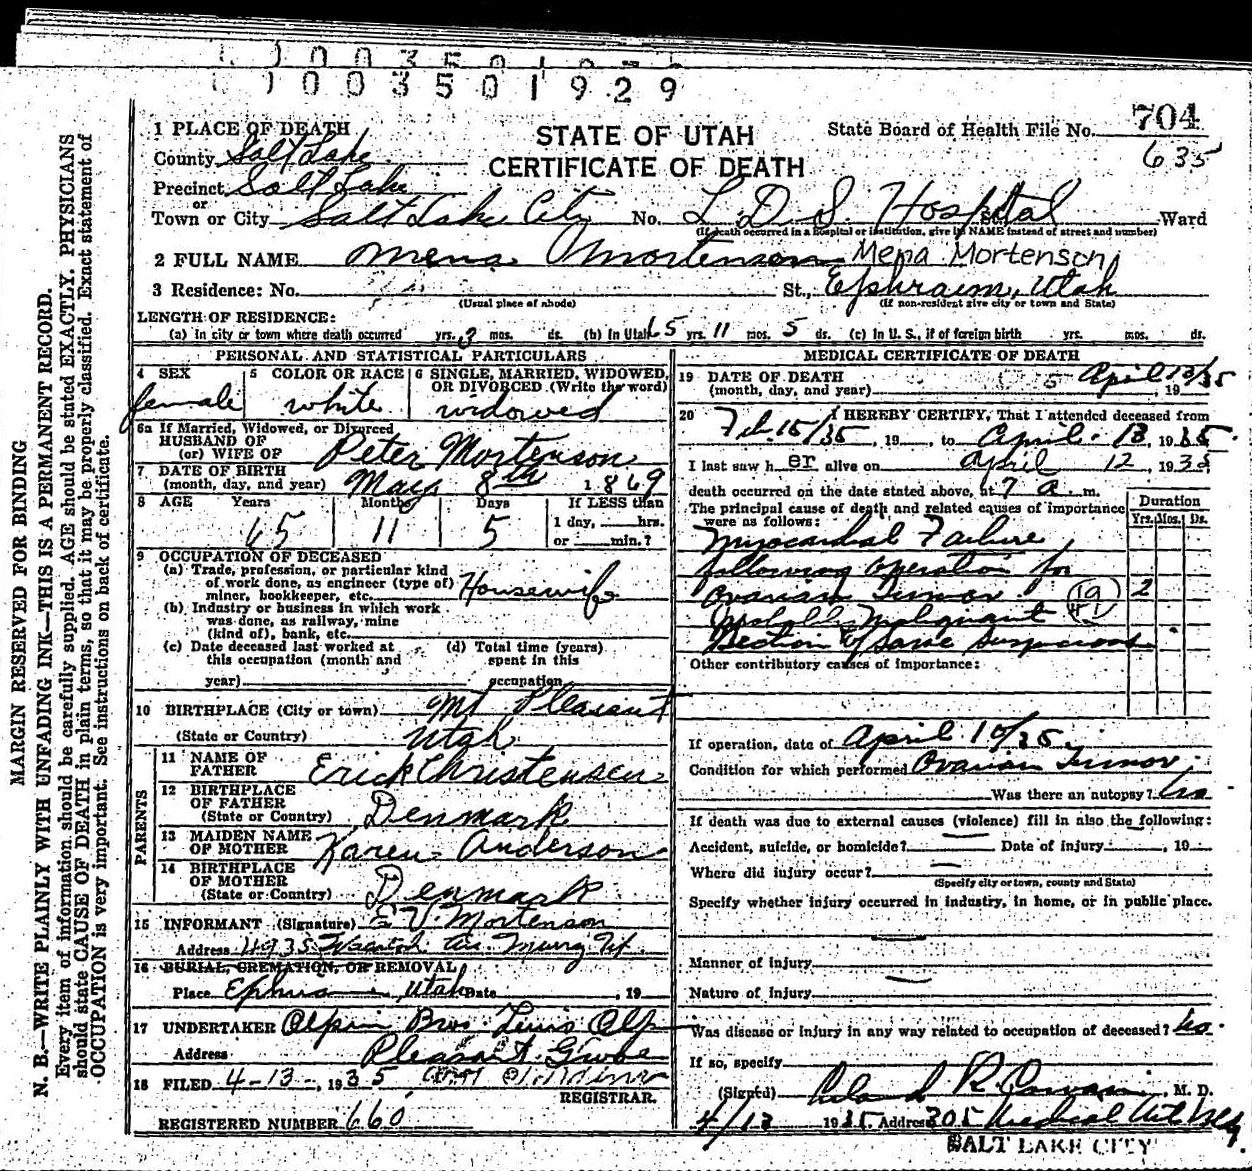 1003501929
1003501929
1 PLACE OF DEATH
County Salt Lake
Precinct Salt Lake
or
Town or City Salt Lake City No. L. D. S. Hospital St. Ward
STATE OF UTAH
CERTIFICATE OF DEATH
State Board of Health File No. 704
635
(If death occurred in a hospital or institution, give its NAME instead of street and number)
2 FULL NAME Mena Mortenson Mena Mortenson
3 Residence: No. St., Ephraim, Utah
(Usual place of abode) (If non-resident give city or town and State)
LENGTH OF RESIDENCE:
(a) In city or town where death occurred yrs. 3 mos. ds. (b) In Utah 65 yrs 11 mos. 5 ds. (c) In U. S., if of foreign birth yrs. mos. ds.
PERSONAL AND STATISTICAL PARTICULARS
4 SEX 5 COLOR OR RACE 6 SINGLE, MARRIED, WIDOWED, OR DIVORCED (Write the word)
female white widowed
6a If Married, Widowed, or Divorced
HUSBAND OF
(or) WIFE OF Peter Mortenson
7 DATE OF BIRTH
(month, day, and year) May 8th 1869
8 AGE Years Months Days If LESS than
65 11 5 1 day, hrs.
or min.?
9 OCCUPATION OF DECEASED
(a) Trade, profession, or particular kind
of work done, as engineer (type of)
miner, bookkeeper, etc. Housewife
(b) Industry or business in which work
was done, as railway, mine
(kind of), bank, etc.
(c) Date deceased last worked at (d) Total time (years)
this occupation (month and spent in this
year) occupation
10 BIRTHPLACE (City or town) Mt Pleasant
(State or Country) Utah
PARENTS
11 NAME OF
FATHER Erick Christensen
12 BIRTHPLACE
OF FATHER
(State or Country) Denmark
13 MAIDEN NAME
OF MOTHER Karen Anderson
14 BIRTHPLACE
OF MOTHER
(State or Country) Denmark
15 INFORMANT (Signature) E V. Mortenson
Address 4935 Wasatch Murray Ut.
16 BURIAL, CREMATION, OR REMOVAL
Place Ephraim, Utah Date , 19
17 UNDERTAKER Olpin Bros. Olp
Address Pleasant Grove
18 FILED 4-13-, 1935
REGISTRAR.
REGISTERED NUMBER 660
MEDICAL CERTIFICATE OF DEATH
19 DATE OF DEATH
(month, day, and year) April 13/35, 19
20 I HEREBY CERTIFY, That I attended deceased from
Feb. 15/35, 19 , to April 13, 1935.
I last saw her alive on April 12, 1935
death occurred on the date stated above, at 7 a. m.
The principal cause of death and related causes of importance
were as follows:
Duration
Yrs. Mos. Ds.
Myocardial Failure
following operation for
Ovarian Tumor. 2
Probably Malignant
Section of same suspicious
Other contributory causes of importance:
If operation, date of April 10/35
Condition for which performed Ovarian Tumor,
Was there an autopsy? no
If death was due to external causes (violence) fill in also the following:
Accident, suicide, or homicide? Date of injury , 19
Where did injury occur?
(Specify city or town, county and State)
Specify whether injury occurred in industry, in home, or in public place.
Manner of injury
Nature of injury
Was disease or injury in any way related to occupation of deceased? no.
If so, specify
(Signed) R. , M. D.
4/13 1935. Address 305 Medical Arts Bldg.
SALT LAKE CITY
MARGIN RESERVED FOR BINDING
N. B.—WRITE PLAINLY WITH UNFADING INK—THIS IS A PERMANENT RECORD.
Every item of information should be carefully supplied. AGE should be stated EXACTLY. PHYSICIANS
should state CAUSE OF DEATH in plain terms, so that it may be properly classified. Exact statement of
OCCUPATION is very important. See instructions on back of certificate.